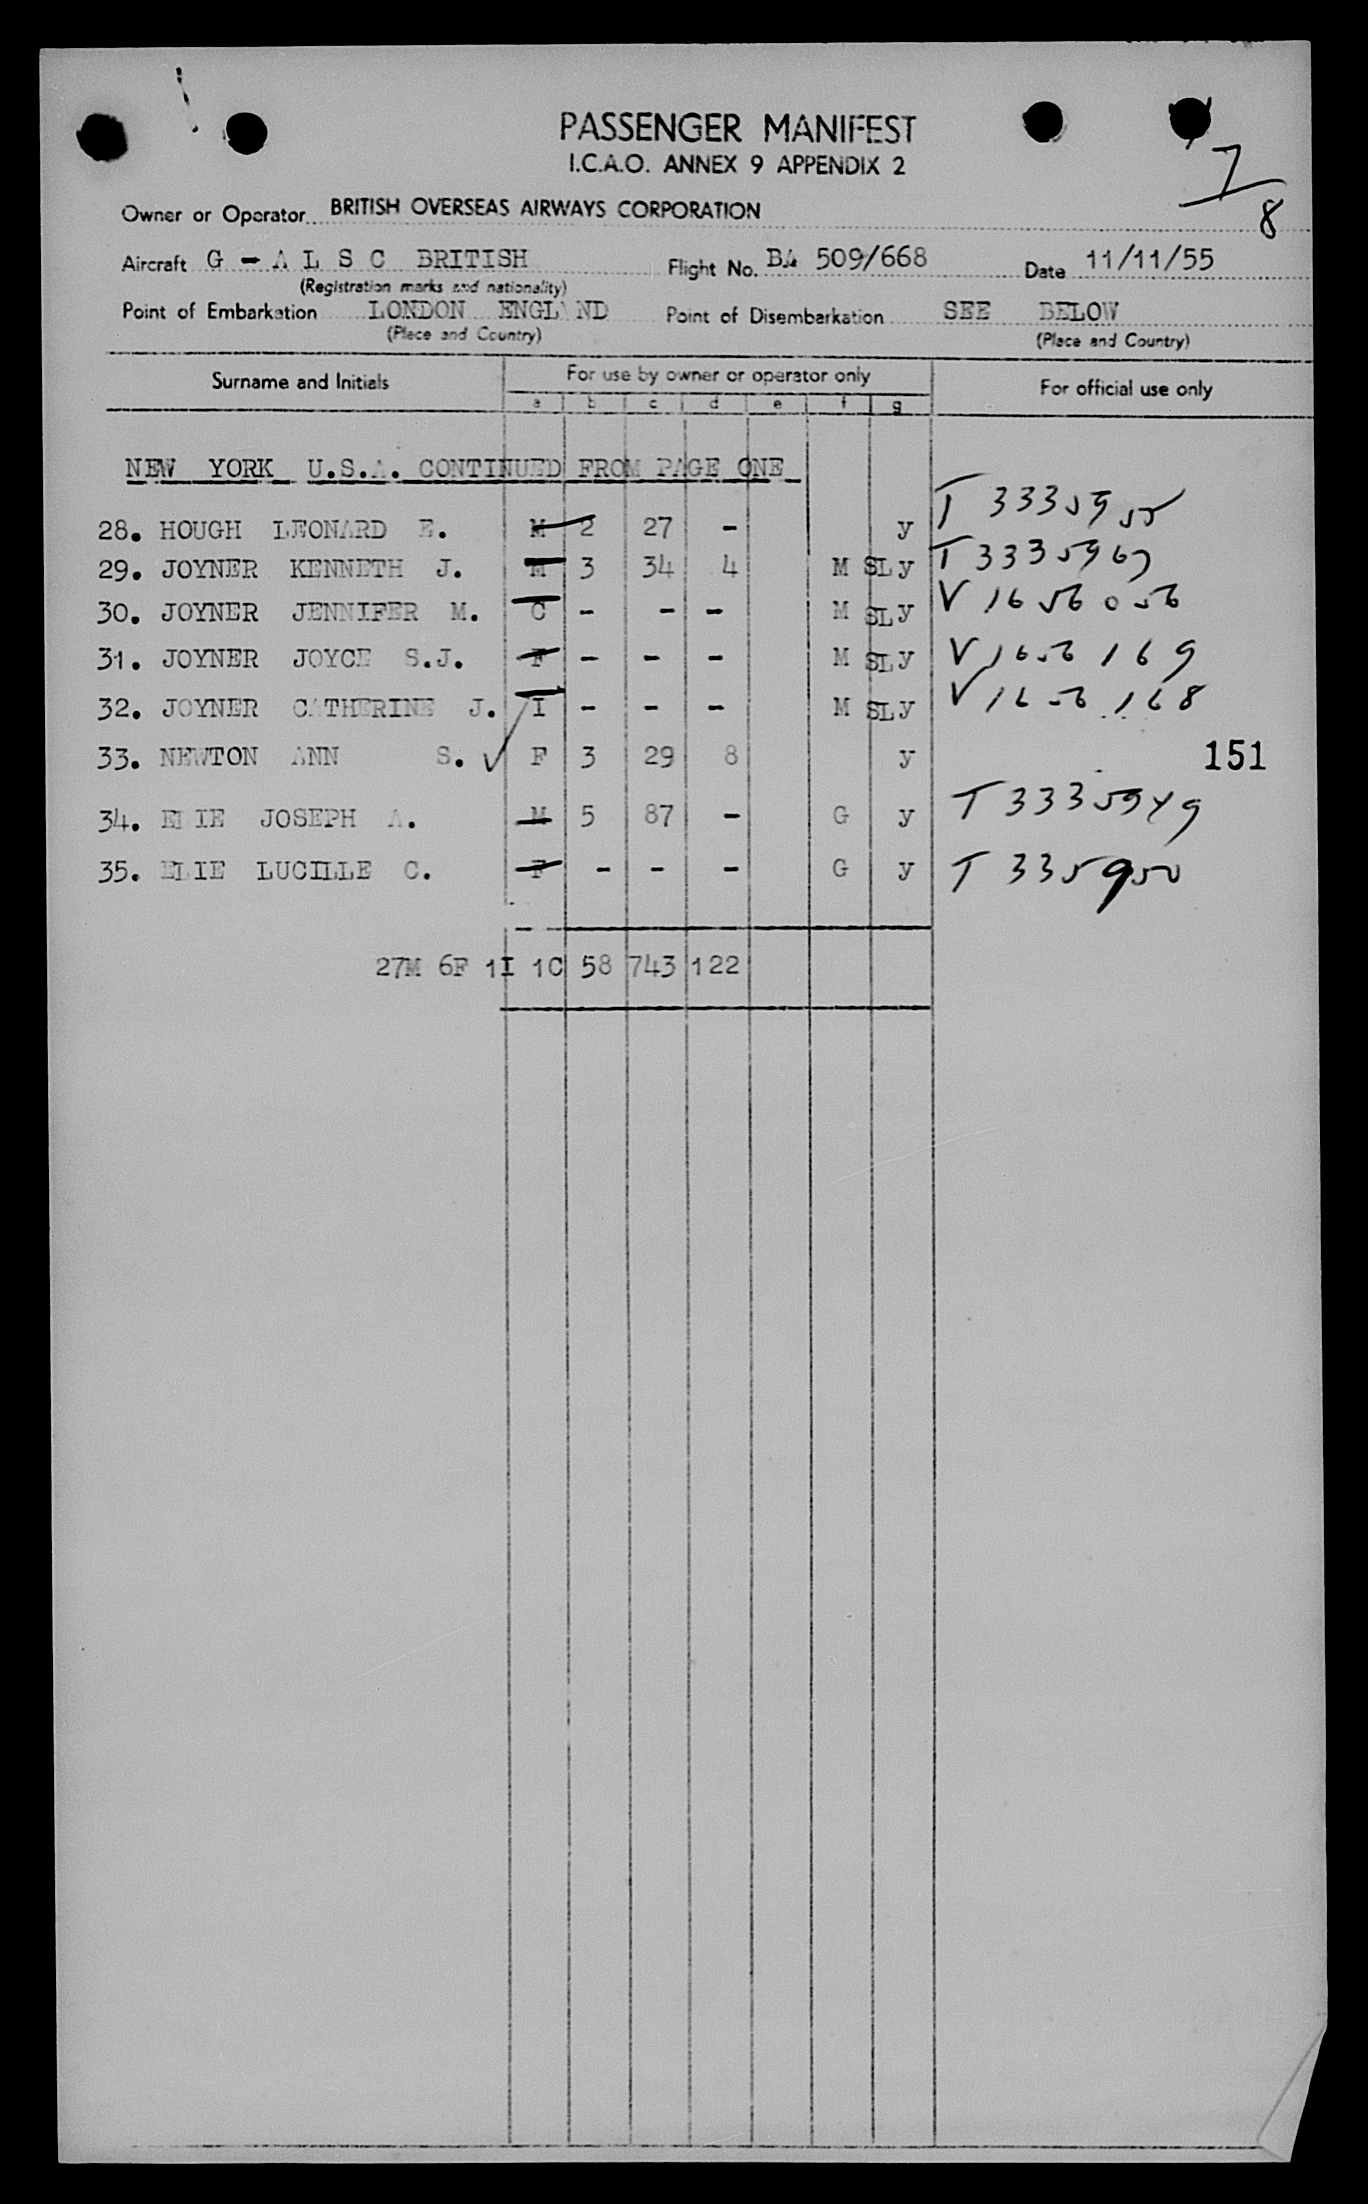 PASSENGER MANIFEST
I.C.A.O. ANNEX 9 APPENDIX 2
7/8
Owner or Operator BRITISH OVERSEAS AIRWAYS CORPORATION
Aircraft G - A L S C BRITISH Flight No. BA 509/668 Date 11/11/55
(Registration marks and nationality)
Point of Embarkation LONDON ENGLAND Point of Disembarkation SEE BELOW
(Place and Country) (Place and Country)
Surname and Initials For use by owner or operator only For official use only
a b c d e f g
NEW YORK U.S.A. CONTINUED FROM PAGE ONE
28. HOUGH LEONARD E. M 2 27 - y T 3335955
29. JOYNER KENNETH J. M 3 34 4 M SL y T 3335967
30. JOYNER JENNIFER M. C - - - M SL y V 1656056
31. JOYNER JOYCE S.J. F - - - M SL y V 1656169
32. JOYNER CATHERINE J. I - - - M SL y V 1656168
33. NEWTON ANN S. F 3 29 8 y 151
34. ELIE JOSEPH A. M 5 87 - G y T 3335949
35. ELIE LUCILLE C. F - - - G y T 335950
27M 6F 1I 1C 58 743 122